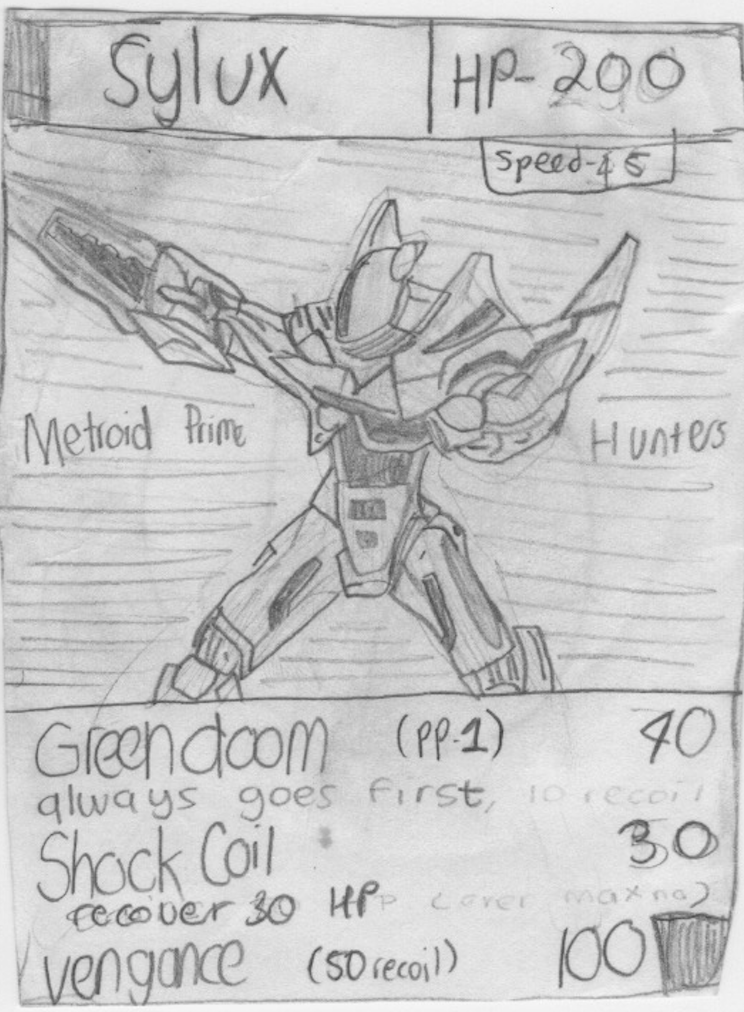 Sylux
HP-200
Speed-45
Metroid Prime
Hunters
Greendoom (PP-1) 40
always goes first, 10 recoil
Shock Coil 30
recover 30 HP (over max no)
Vengance (50 recoil) 100